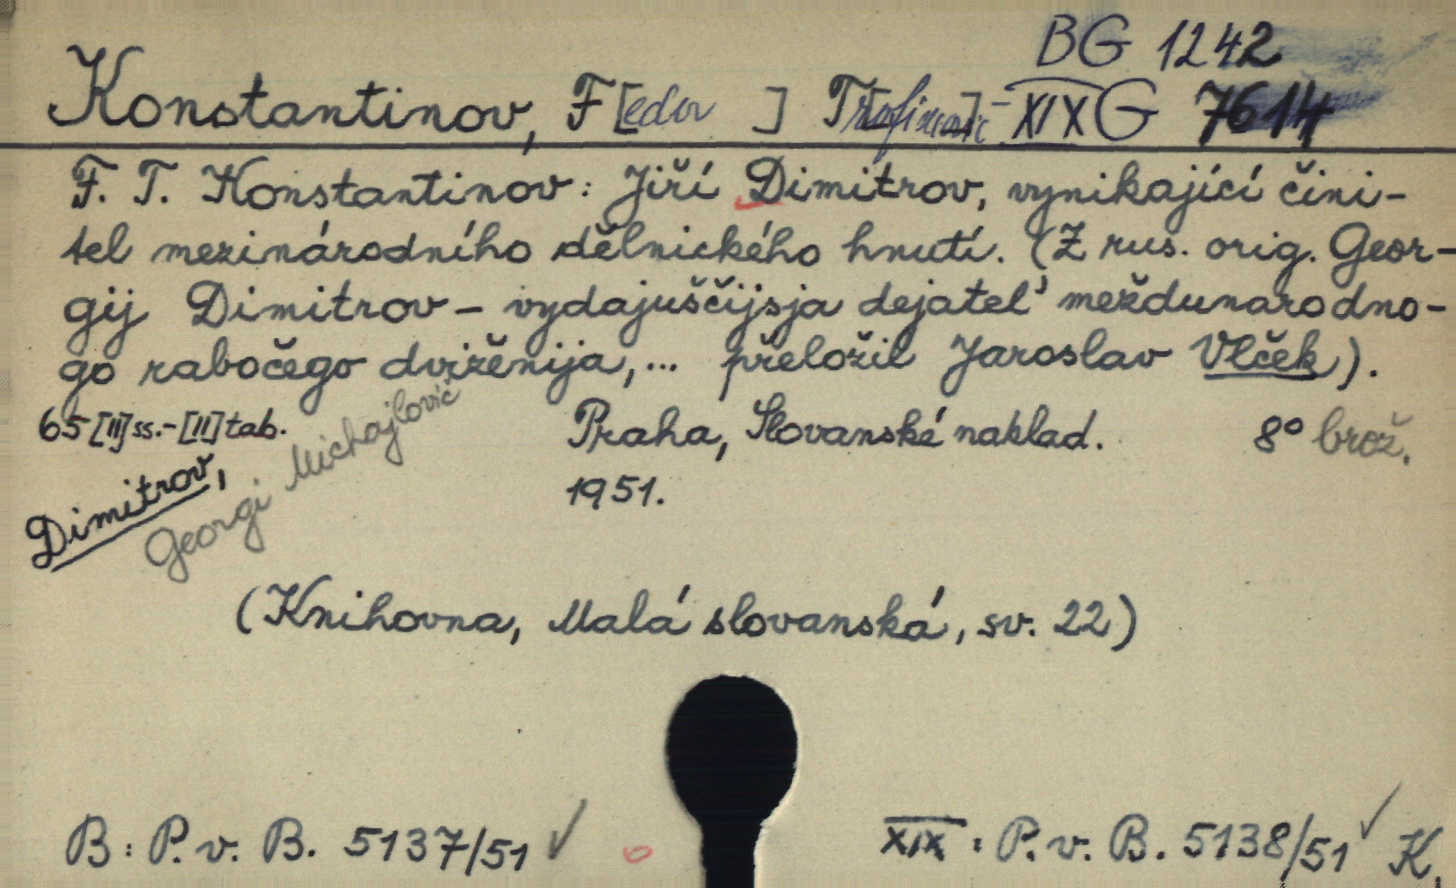 BG 1242
Konstantinov, F[edor ] Tr[ofimovič]- XIX G 7614
F. T. Konstantinov: Jiří Dimitrov, vynikající čini-
tel mezinárodního dělnického hnutí. (Z rus. orig. Geor-
gij Dimitrov - vydajuščijsja dejatel' meždunarodno-
go rabočego dviženija,... přeložil Jaroslav Vlček).
65 [II] ss.-[II] tab. Praha, Slovanské naklad. 8° brož.
1951.
Dimitrov,
Georgi Michajlovič
(Knihovna, Malá slovanská, sv. 22)
B: P. v. B. 5137/51 ✓ XIX: P. v. B. 5138/51 ✓ K.